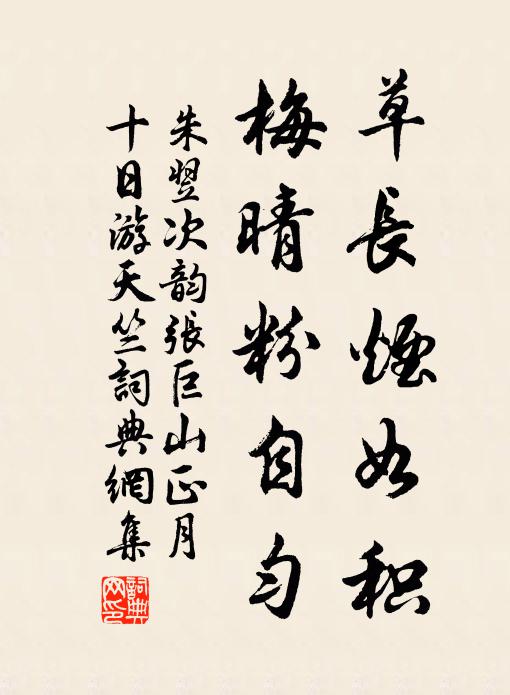 草長煙如积
梅晴粉自匀
朱翌次韵張巨山正月
十日游天竺詞典網集
詞典網印